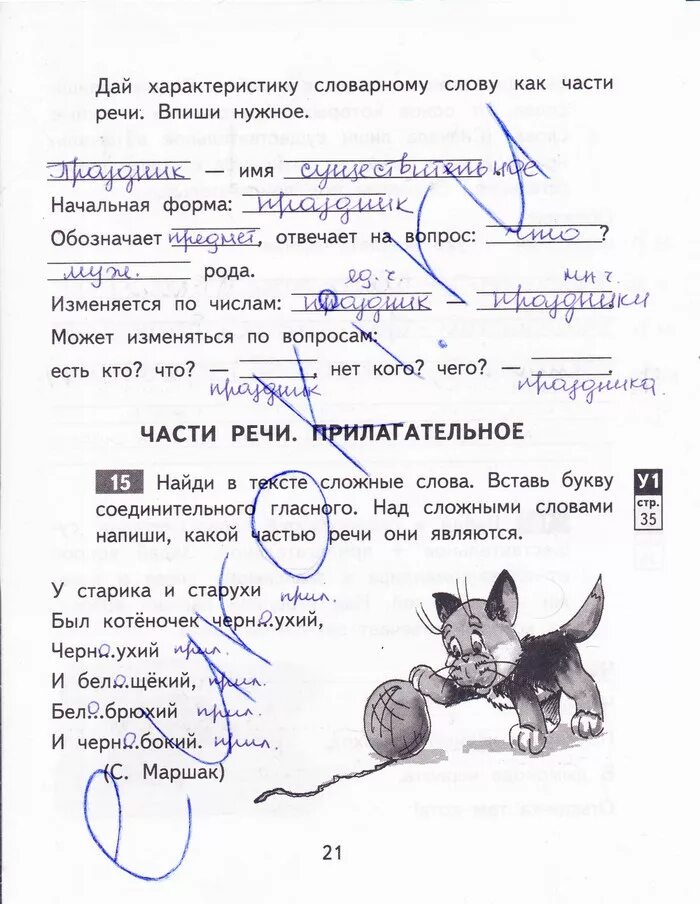 Дай характеристику словарному слову как части
речи. Впиши нужное.
Праздник — имя существительное
Начальная форма: праздник
Обозначает предмет, отвечает на вопрос: что ?
муж. рода. ед.ч. мн.ч.
Изменяется по числам: праздник — праздники
Может изменяться по вопросам:
есть кто? что? — праздник, нет кого? чего? — праздника.
ЧАСТИ РЕЧИ. ПРИЛАГАТЕЛЬНОЕ
15 Найди в тексте сложные слова. Вставь букву
соединительного гласного. Над сложными словами
напиши, какой частью речи они являются.
У1
стр.
35
У старика и старухи прил.
Был котёночек черно.ухий,
Черно.ухий прил.
И бело.щёкий, прил.
Бело.брюхий прил.
И черно.бокий. прил.
(С. Маршак)
21